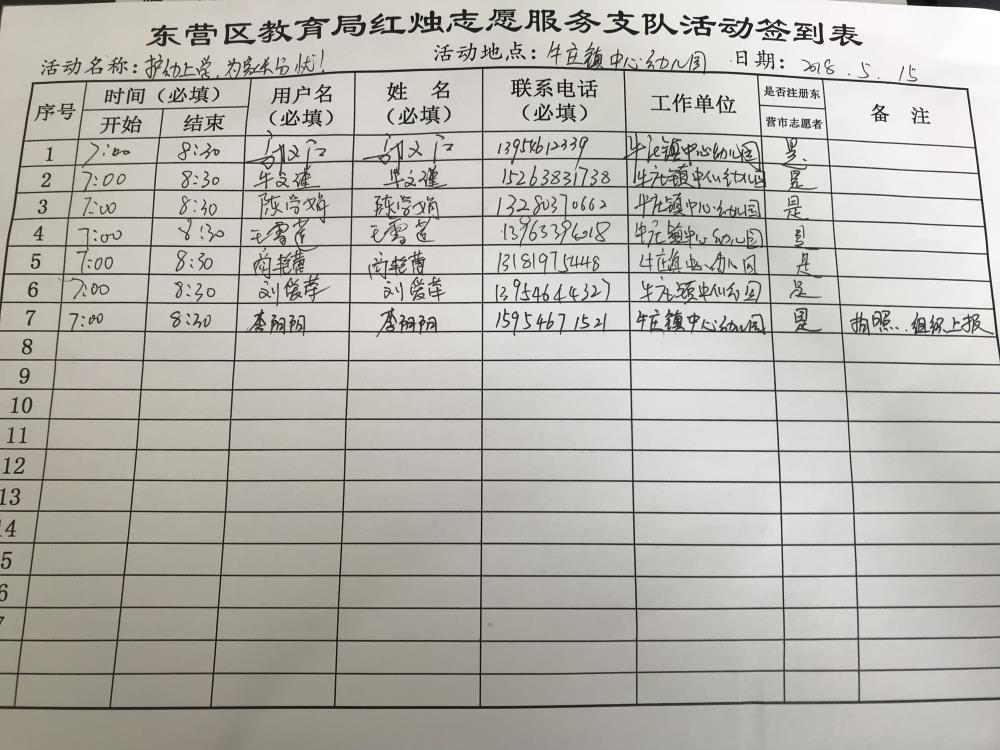 东营区教育局红烛志愿服务支队活动签到表
活动名称：护幼上学，为家长分忧！ 活动地点：牛庄镇中心幼儿园 日期：2018.5.15
序号 时间（必填） 用户名（必填） 姓名（必填） 联系电话（必填） 工作单位 是否注册东营市志愿者 备注
开始 结束
1 7:00 8:30 13954612339 牛庄镇中心幼儿园 是
2 7:00 8:30 牛文瑾 牛文瑾 15263831738 牛庄镇中心幼儿园 是
3 7:00 8:30 陈学娟 陈学娟 13280370662 牛庄镇中心幼儿园 是
4 7:00 8:30 王雪莲 王雪莲 牛庄镇中心幼儿园 是
5 7:00 8:30 尚艳蕾 尚艳蕾 13181975448 牛庄镇中心幼儿园 是
6 7:00 8:30 刘爱萍 刘爱萍 13954644327 牛庄镇中心幼儿园 是
7 7:00 8:30 李阴阴 李阴阴 15954671521 牛庄镇中心幼儿园 是 拍照、组织上报
8
9
10
11
12
13
14
5
6
7